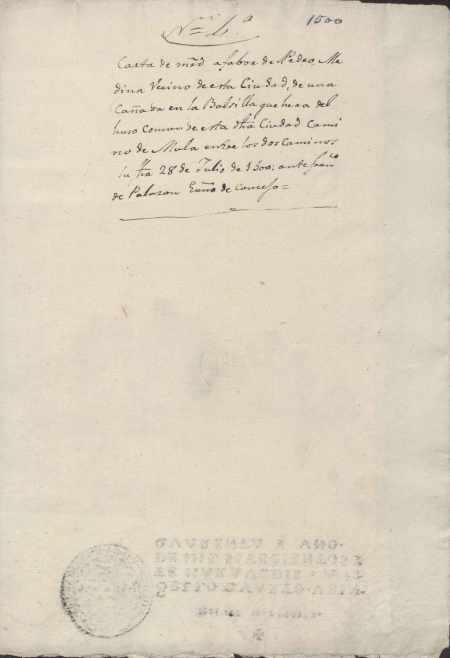 Nº 4º
1500
Carta de mrd a fabor de Pedro Me
dina Vecino de esta Ciudad, de una
Cañada en la Balsilla que hera del
huso Comun de esta dha Ciudad Cami
no de Mula entre los dos Caminos
su fha 28 de Julio de 1500: ante Franco
de Palazon Essno de Concejo =